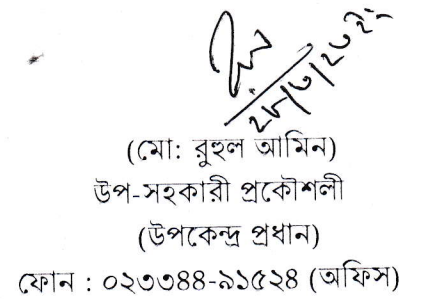 (মো: রুহুল আমিন)
উপ-সহকারী প্রকৌশলী
(উপকেন্দ্র প্রধান)
ফোন : ০২৩৩৪৪-৯১৫২৪ (অফিস)